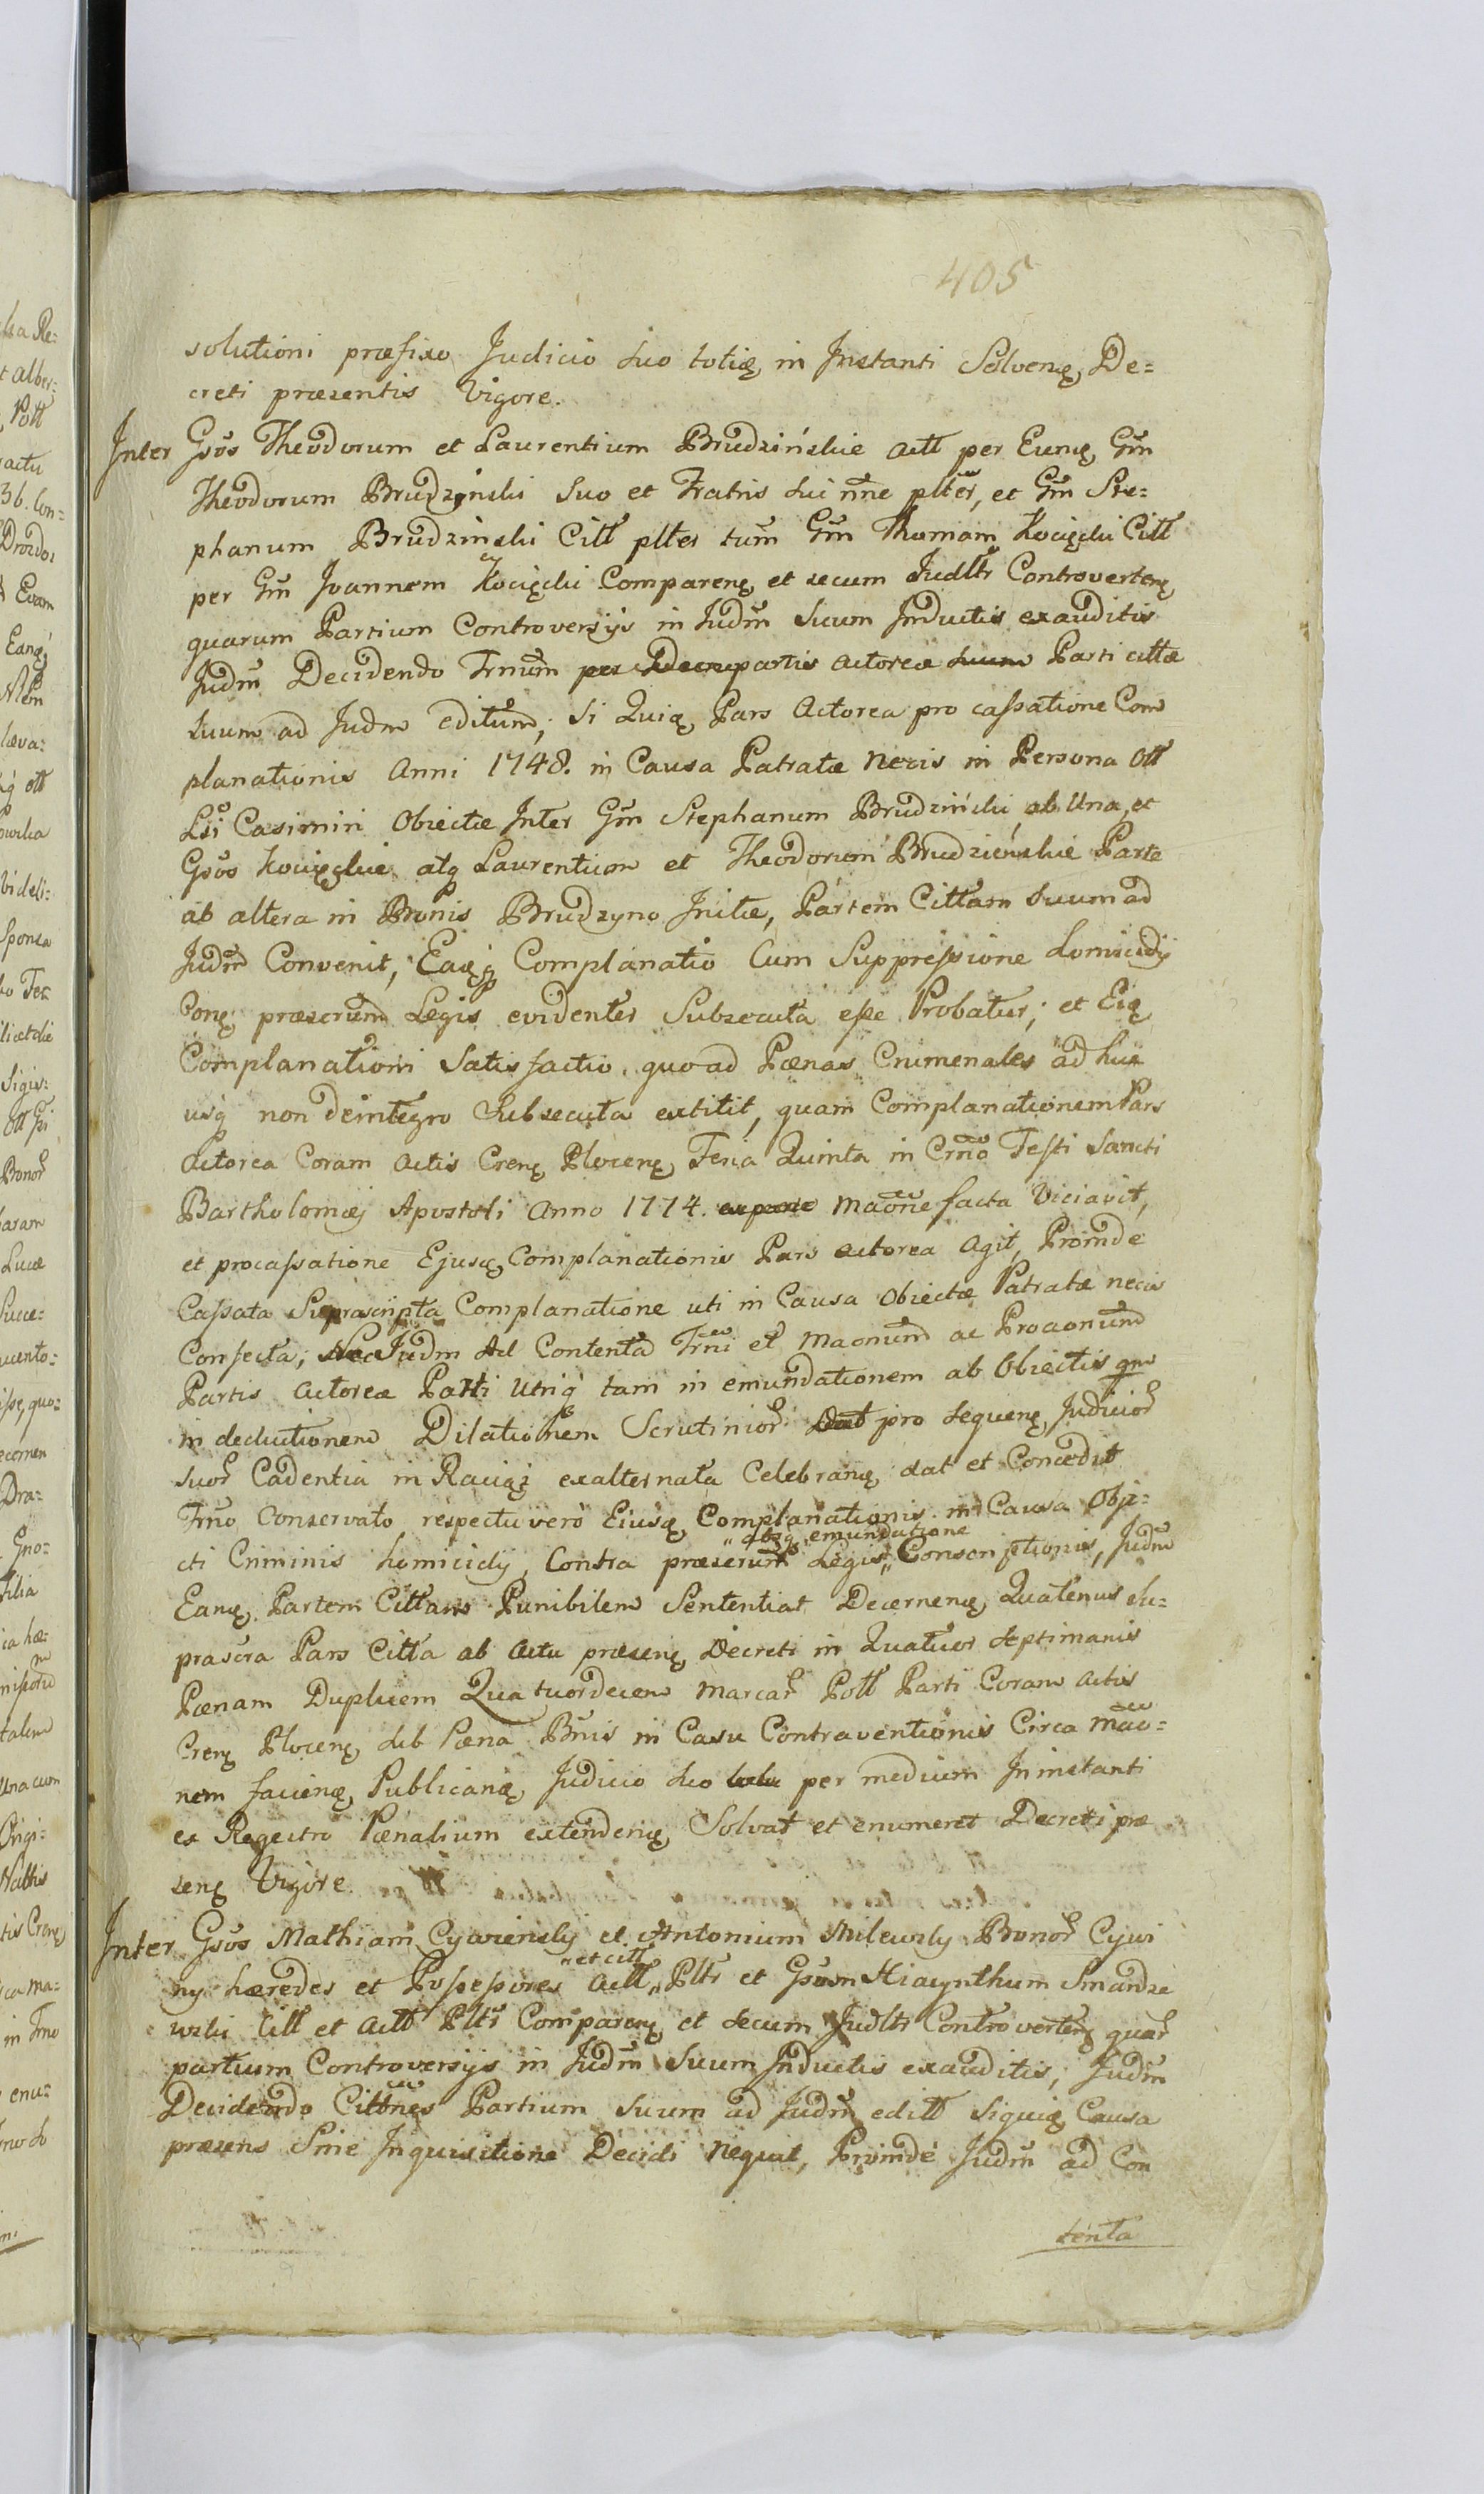 405
solutioni præfixo Judicio suo totię in Instanti Solvenę, De=
creti præsentis Vigore.
Inter Gsos Theodorum et Laurentium Brudzińskie actt per Eunę Gm
Theodorum Brudzinski Suo et Fratris sui nne ptter, et Gm Ste=
phanum Brudzinski Citt ptter tum Gm Thomam Kocięcki Citt
per Gm Joannem Kocięcki Comparenę et secum Judttr Controvertenę
quarum Partium Controversijs in Judm Suum Inductis exauditis
Judm Decidendo Trnum partis actoreæ Parti cittæ
suum ad Judm editum, Si Quię Pars Actorea pro cassatione Com
planationis Anni 1748. in Causa Patratæ Necis in Persona Ott
Lsi Casimiri Obiectæ Inter Gm Stephanum Brudziński ab Una, et
Gsos Kocięckie atq Laurentium et Theodorum Brudzieńskie Parte
ab altera in Bonis Brudzyno Initæ, Partem Cittam Suum ad
Judm Convenit, Eaęq Complanatio Cum Suppressione homicidij
Conę præscrum Legis evidenter Subsecuta esse Probatur; et Eię
Complanationi Satisfactio quoad Pænas Crimenales ad huc
usq non deintegro Subsecuta extitit, quam Complanationem Pars
Actorea Coram Actis Crenę Plocenę Feria Quinta in Crno Festi Sancti
Bartholomæj Apostoli Anno 1774. maone facta Viciavit,
et procassatione Ejusę Complanationis Pars actorea Agit, Proinde
Cassata Suprascripta Complanatione uti in Causa Obiectæ Patratæ necis
Confecta; Judm Ad Contenta Trni et Maonum ac Proaonum
Partis Actoreæ Parti Utriq tam in emundationem ab Obiectis qm
in deductionem Dilationem Scrutinior pro sequenę Judicior
suor Cadentia in Raciąż exalternata Celebranę dat et Concedit
Trno Conservato respectu vero Eiusę Complanationis in Causa Obje=
cti Criminis homicidij, Contra præscrum Legis „absq emundatione„ Conscriptionis, Judm
Eanę Partem Cittam Punibilem Sententiat Decernenę Quatenus su=
prascra Pars Citta ab Actu præsenę Decreti in Quatuor Septimanis
Pænam Duplicem Quatuordecem Marcar Pott Parti Coram Actis
Crenę Plocenę sub Pæna Bnis in Casu Contraventionis Circa Mao=
nem facienę Publicanę Judicio suo per medium In instanti
ex Regestro Pænalium extendenę Solvat et enumeret Decreti præ
senę Vigore.
Inter Gsos Mathiam Cywinsky et Antonium Milewsky Bonor Cywi
ny hæredes et Possessores Actt „et citt„ Pttr et Gsum Hiacynthum Smardze
wski Citt et Actt Pttr Comparenę et secum Judttr Controvertenę quar
partium Controversijs in Judm Suum Inductis exauditis, Judm
Decidendo Cittnes Partium Suum ad Judm editt Siquię Causa
præsens Sine Inquisitione Decidi Nequit, Proinde Judm ad Con
tenta